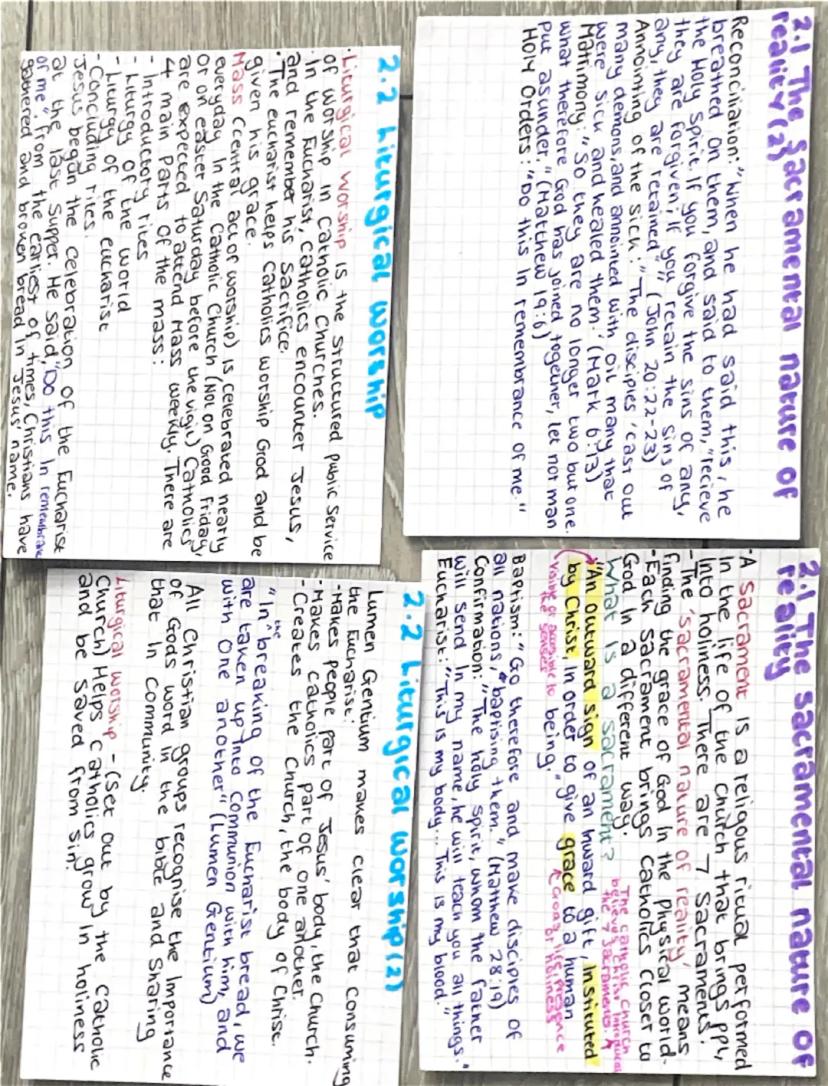 2.1 The sacramental nature of
reality
-A sacrament is a religous ritual performed
in the life of the Church that brings ppl
into holiness. There are 7 sacraments.
-The 'sacramental nature of reality' means
finding the grace of God in the physical world-
-Each sacrament brings Catholics closer to
God in a different way.
What is a sacrament?
The Catholic Church
believe
the 7 sacraments
"An outward sign of an inward gift, instituted
by Christ, in order to give grace to a human
being."
visible or
the senses
Gods
or holiness
Baptism: "Go therefore and make disciples of
all nations, baptising them." (Matthew 28:19)
Confirmation: "The holy spirit, whom the father
will send in my name, he will teach you all things."
Eucharist: "This is my body... This is my blood."
2.1 The sacramental nature of
reality(2)
Reconciliation: "When he had said this, he
breathed on them, and said to them, "recieve
the Holy Spirit. If you forgive the sins of any,
they are forgiven; if you retain the sins of
any, they are retained" (John 20:22-23)
Annointing of the sick: "The disciples 'cast out
many demons, and annointed with oil many that
were sick and healed them.' (Mark 6:13)
Matrimony: "So they are no longer two but one.
what therefore God has joined together, let not man
put asunder." (Matthew 19:6)
Holy Orders: "Do this in remembrance of me."
2.2 Liturgical worship
·Liturgical worship is the structured public service
of worship in Catholic Churches.
·In the Eucharist, Catholics encounter Jesus,
and remember his sacrifice.
·The eucharist helps Catholics worship God and be
given his grace.
Mass (central act of worship) is celebrated nearly
everyday in the Catholic Church (Not on Good Friday,
or on easter Saturday before the vigil) Catholics
are expected to attend Mass weekly. There are
4 main parts of the mass:
- Introductory rites
- Liturgy of the world
- Liturgy of the eucharist
- Concluding rites.
·Jesus began the celebration of the Eucharist
at the last supper. He said, "Do this in remembrance
of me". From the earliest of times, Christians have
gathered and broken bread in Jesus' name.
2.2 Liturgical worship(2)
Lumen Gentium makes clear that consuming
the Eucharist:
-Makes people part of Jesus' body, the Church.
-Makes catholics part of one another.
-Creates the Church, the body of Christ.
"In the breaking of the Eucharist bread, we
are taken up into communion with him, and
with one another" (Lumen Gentium)
All Christian groups recognise the importance
of Gods word in the bible and sharing
that in community.
Liturgical worship - (Set out by the catholic
Church) Helps catholics grow in holiness
and be saved from sin.